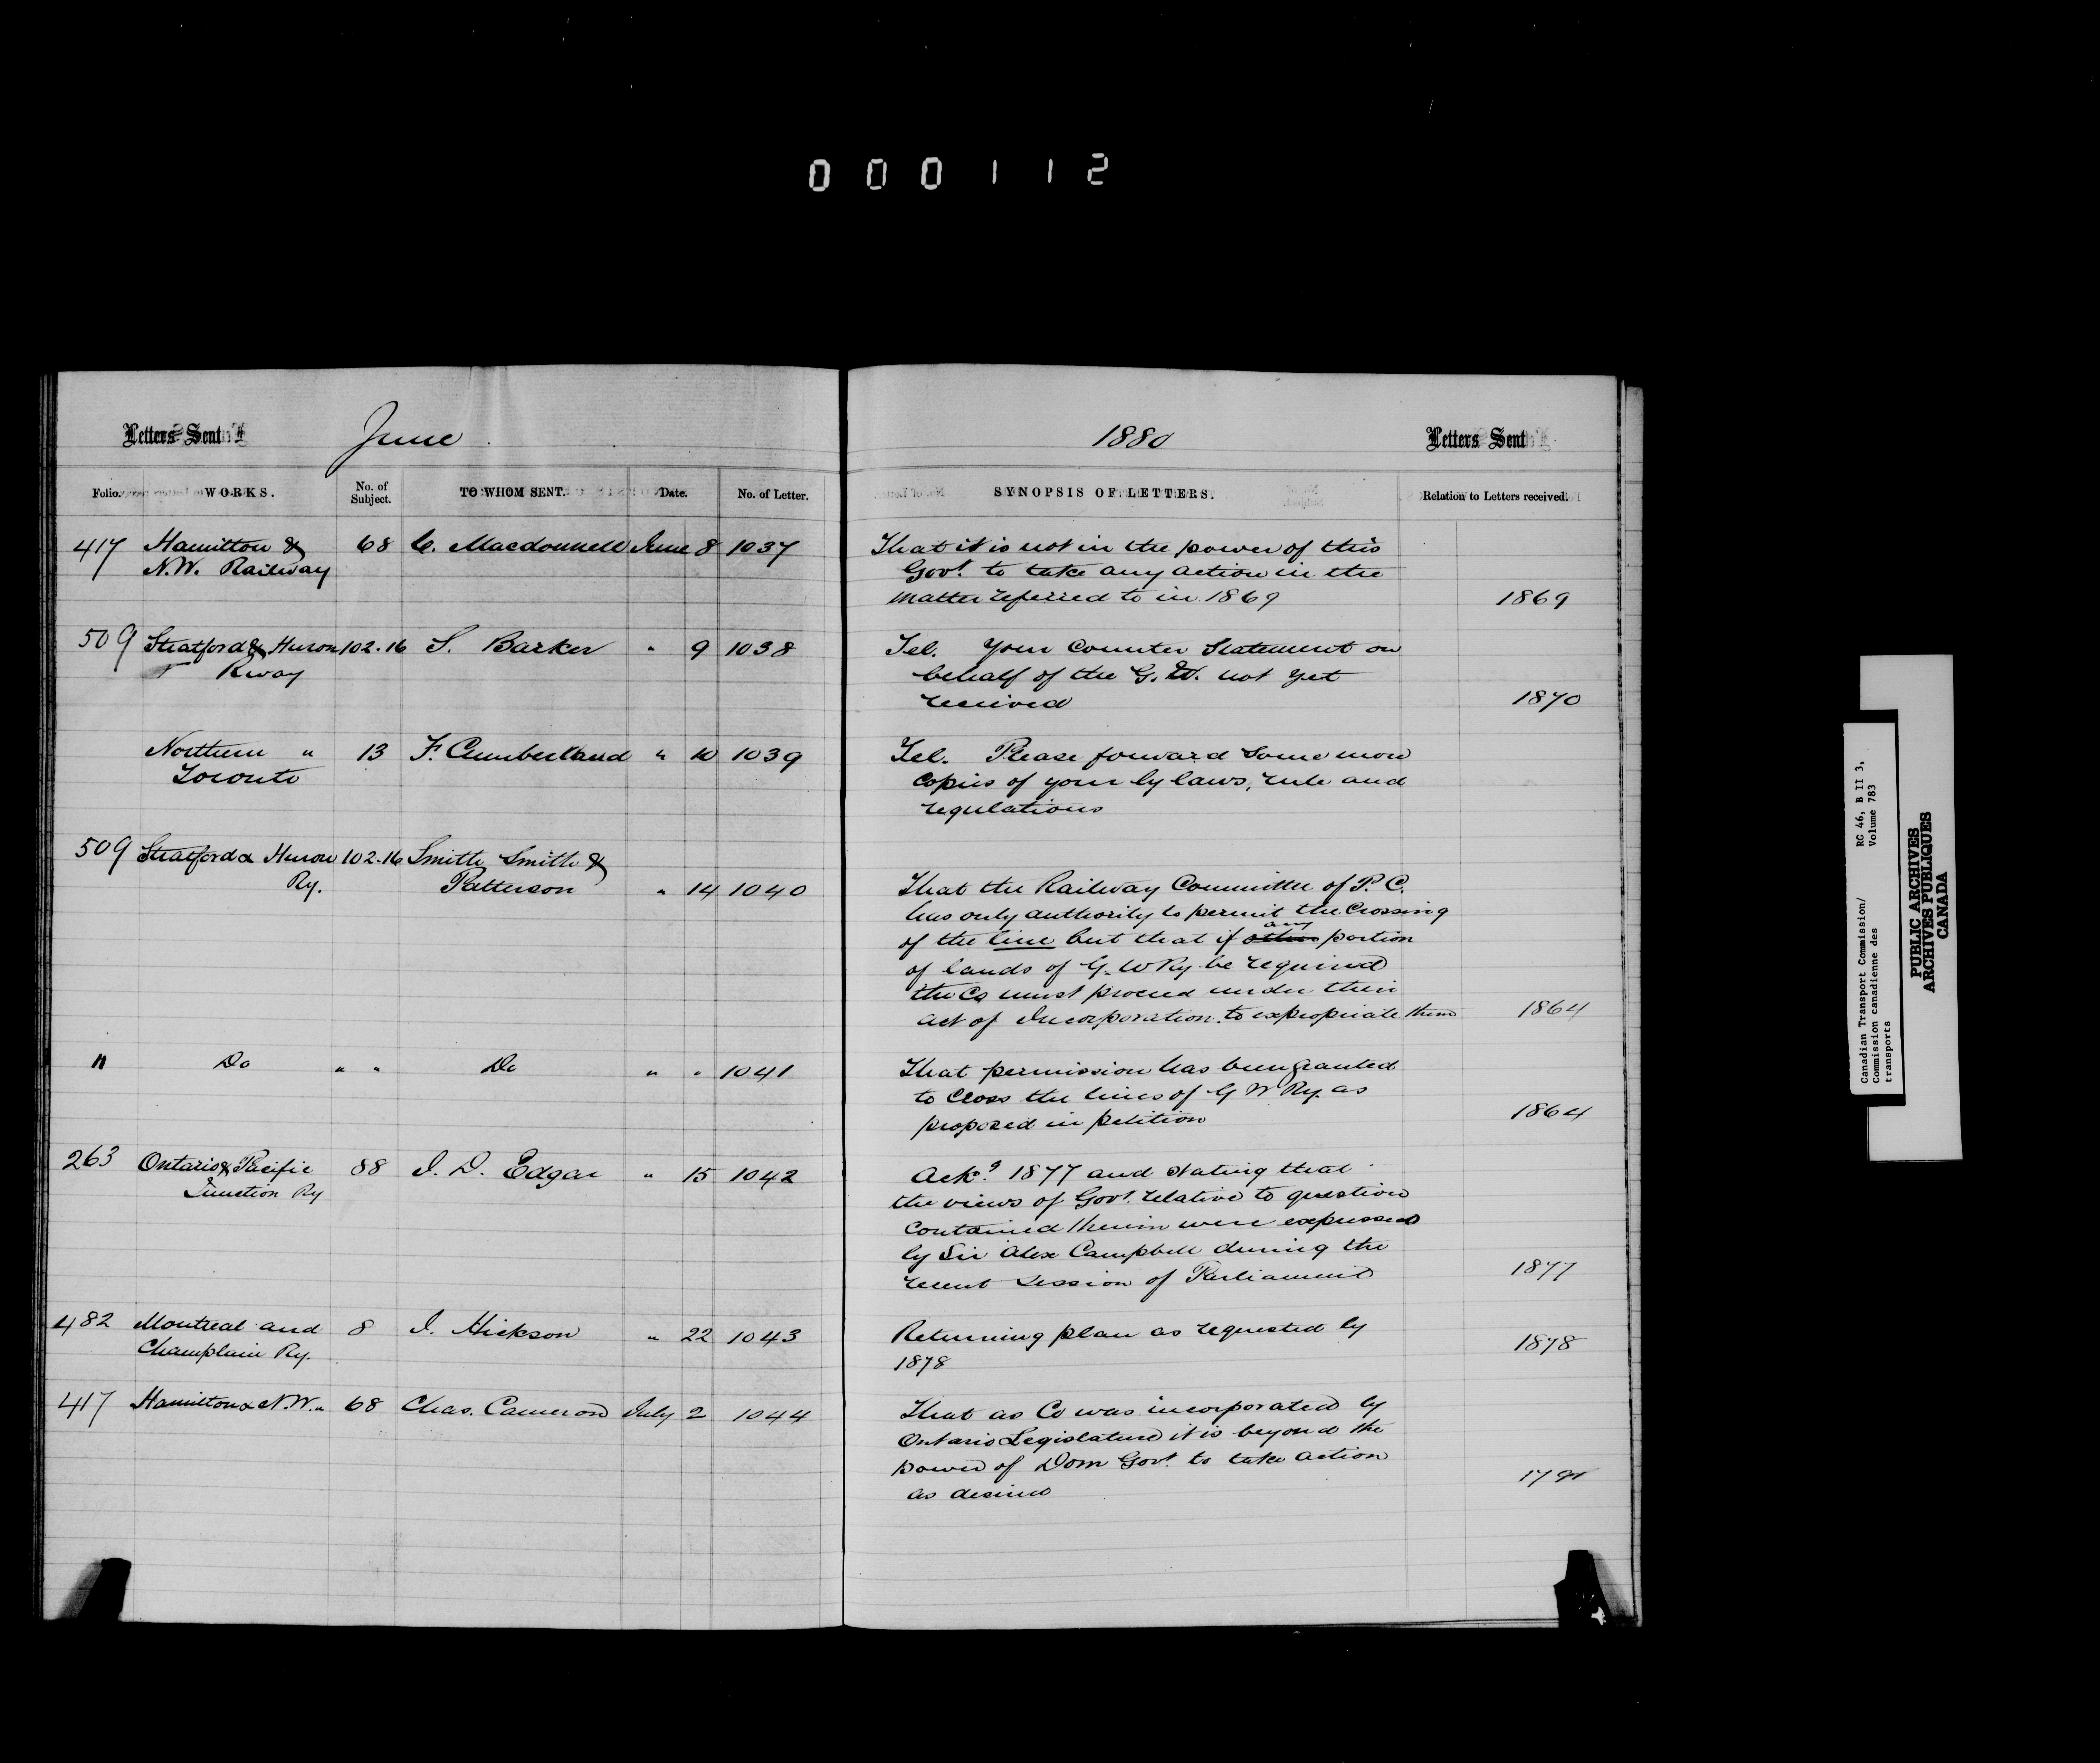 000112
Letters Sent
June
1880
Letters Sent
Folio. WORKS. No. of Subject. TO WHOM SENT. Date. No. of Letter. SYNOPSIS OF LETTERS. Relation to Letters received.
417 Hamilton & 68 C. Macdonnell June 8 1037 That it is not in the power of this
N.W. Railway Govt. to take any action in the
matter referred to in 1869 1869
509 Stratford & Huron 102.16 S. Barker " 9 1038 Tel. Your Counter Statement on
Rway behalf of the G.W. not yet
received 1870
Northern " 13 F. Cumberland " 10 1039 Tel. Please forward some more
Toronto copies of your by laws, rule and
regulations
509 Stratford & Huron 102.16 Smith Smith &
Ry. Patterson " 14 1040 That the Railway Committee of P.C.
has only authority to permit the Crossing
any
of the line but that if other portion
of lands of G. W Ry. be required
the Co must proceed under their
act of Incorporation to expropriate them 1864
" Do " " Do " " 1041 That permission has been granted
to Cross the lines of G W Ry. as
proposed in petition 1864
263 Ontario & Pacific 88 J. D. Edgar " 15 1042 Ackg. 1877 and stating that
Junction Ry the views of Govt. relative to question
contained therein were expressed
by Sir Alex Campbell during the
recent session of Parliament 1877
482 Montreal and 8 J. Hickson " 22 1043 Returning plan as requested by
Champlain Ry. 1878 1878
417 Hamilton & N.W. " 68 Chas. Cameron July 2 1044 That as Co was incorporated by
Ontario Legislature it is beyond the
power of Dom Govt. to take action
as desired
Canadian Transport Commission/ RG 46, B II 3,
Commission canadienne des Volume 783
transports
PUBLIC ARCHIVES
ARCHIVES PUBLIQUES
CANADA